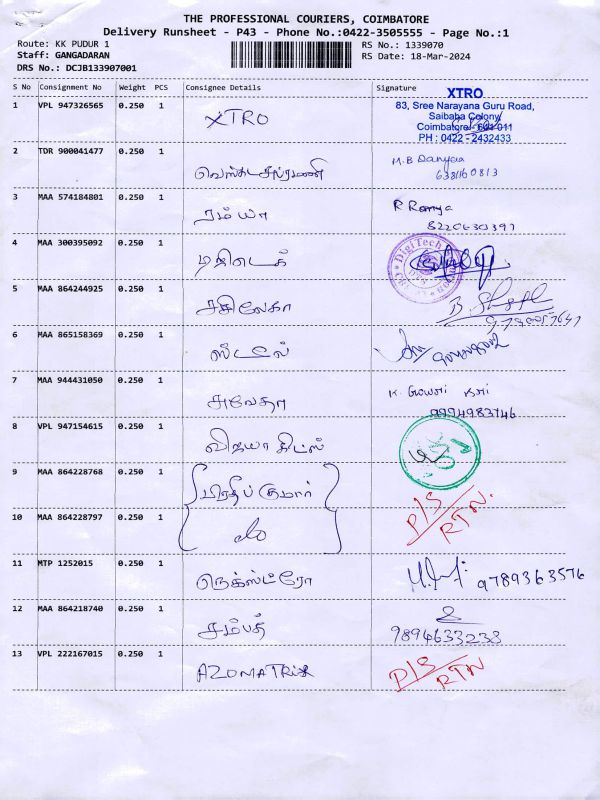 THE PROFESSIONAL COURIERS, COIMBATORE
Delivery Runsheet - P43 - Phone No.:0422-3505555 - Page No.:1
Route: KK PUDUR 1
RS No.: 1339070
Staff: GANGADARAN
RS Date: 18-Mar-2024
DRS No.: DCJB133907001
S No Consignment No Weight PCS Consignee Details Signature
1 VPL 947326565 0.250 1 XTRO
XTRO
83, Sree Narayana Guru Road,
Saibaba Colony,
Coimbatore - 641 011
PH : 0422 - 2432433
2 TDR 900041477 0.250 1 M.B Danyaa
6381160813
3 MAA 574184801 0.250 1 ரம்யா R Ramya
8220630397
4 MAA 300395092 0.250 1 DigiTech
5 MAA 864244925 0.250 1 சசிலேகா
6 MAA 865158369 0.250 1 ஸ்டீல்
7 MAA 944431050 0.250 1 K. Gowri
9994983746
8 VPL 947154615 0.250 1 விஜயா கிட்ஸ்
9 MAA 864228768 0.250 1 பிரதீப் குமார் P/S
RTN.
10 MAA 864228797 0.250 1 do
11 MTP 1252015 0.250 1 நெக்ஸ்ட்ரோ 9789363576
12 MAA 864218740 0.250 1 சம்பத்
9894633233
13 VPL 222167015 0.250 1 AZOMATRIX P/S
RTN